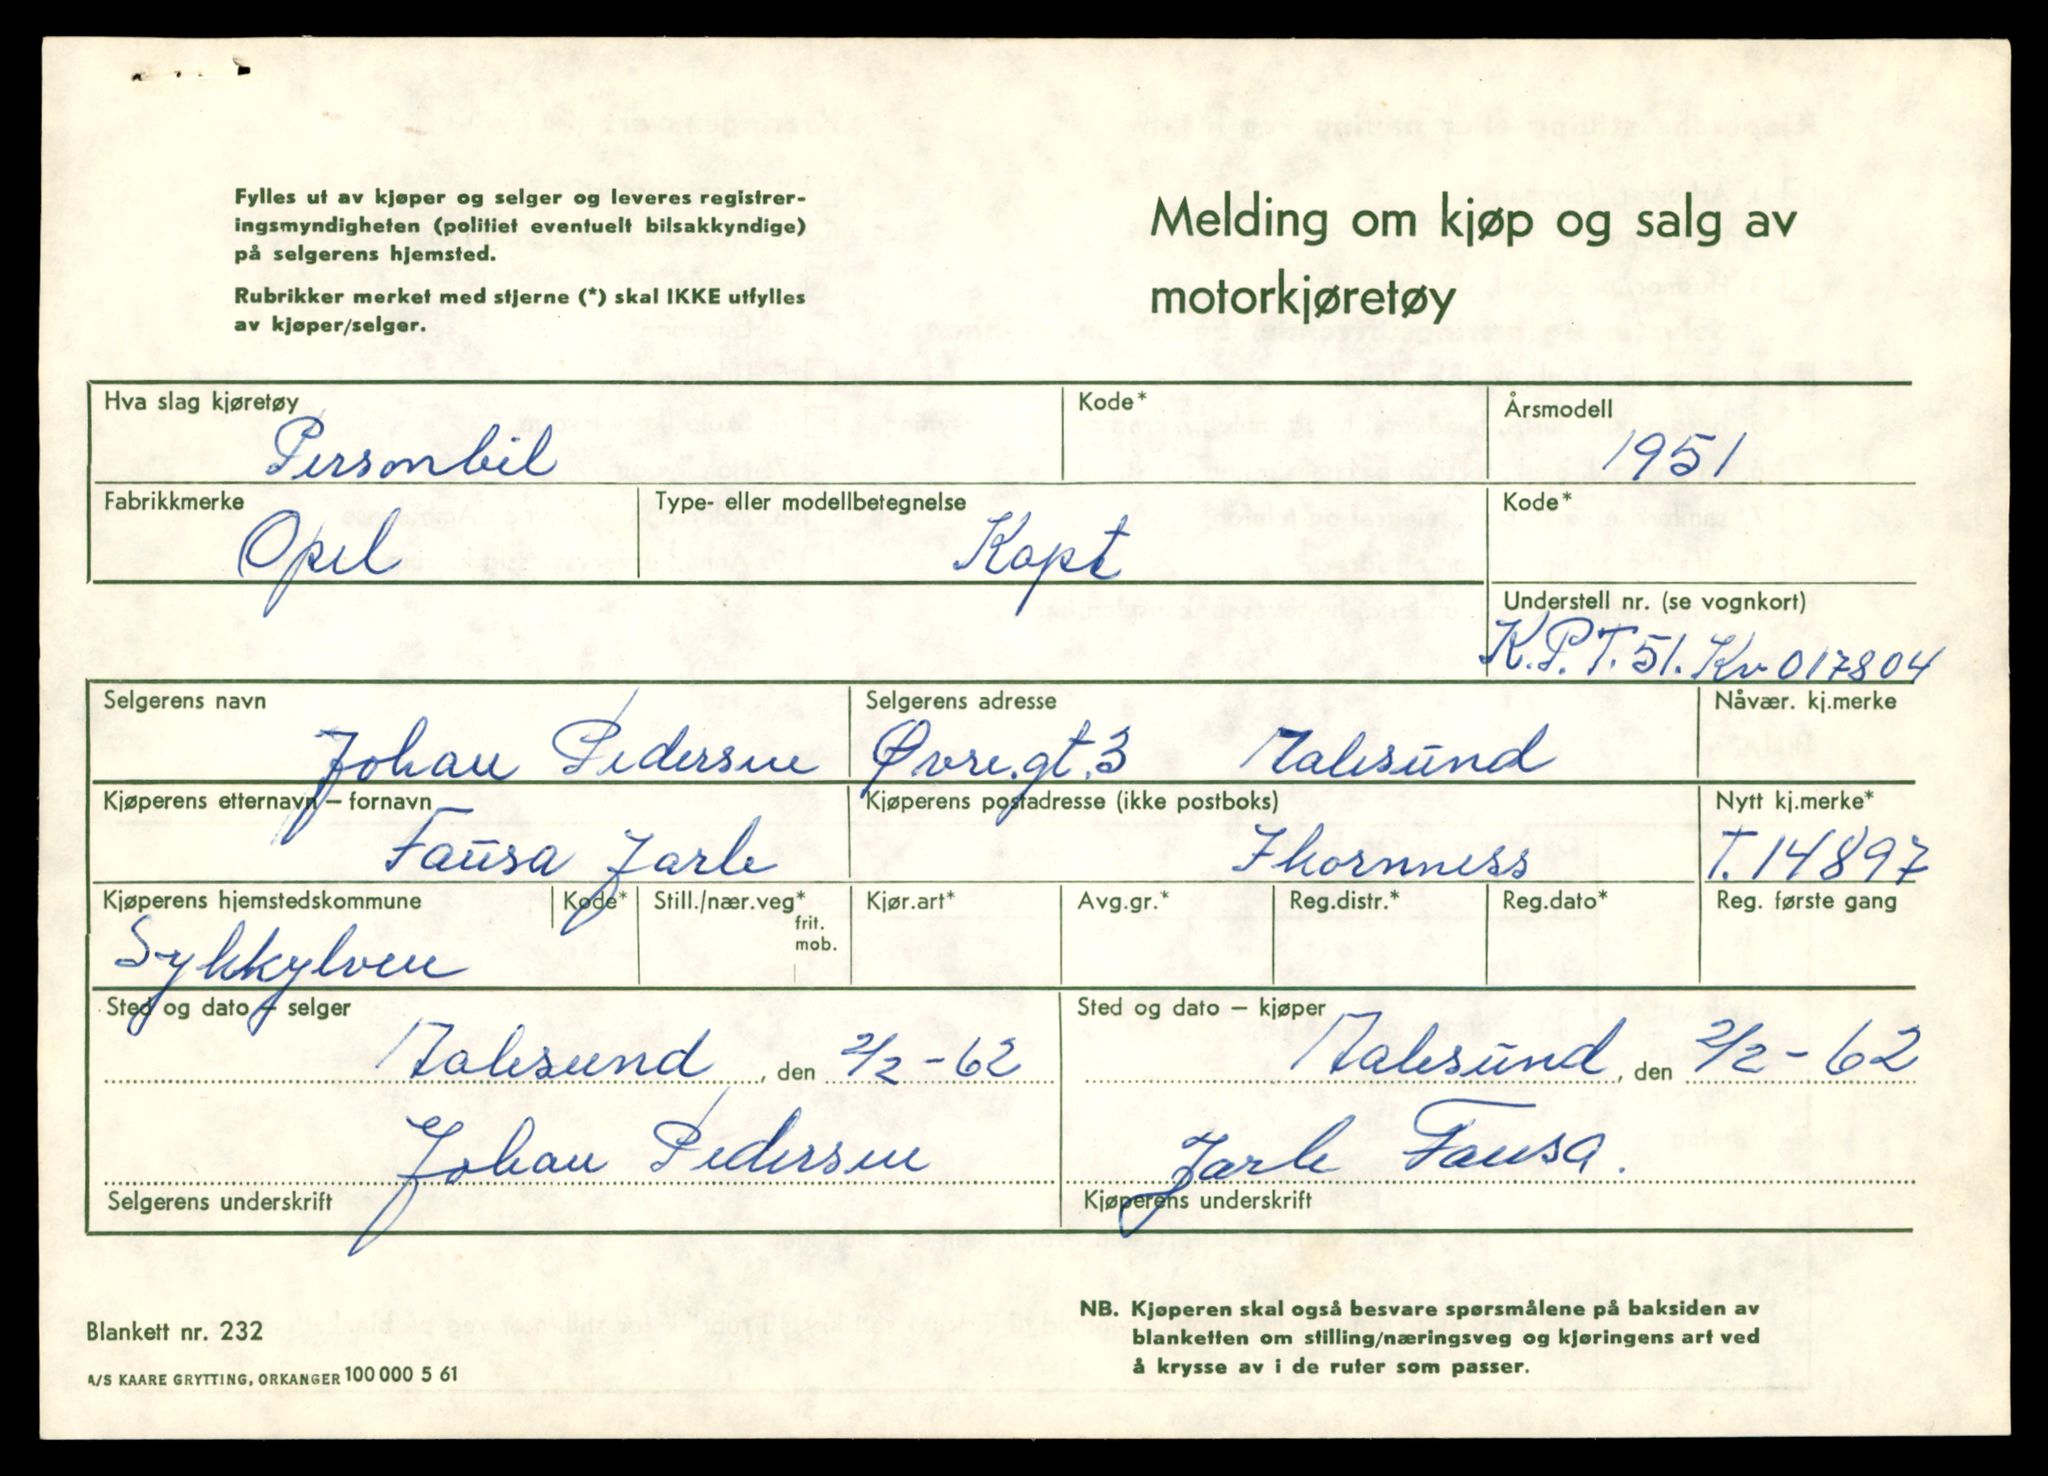 Fylles ut av kjøper og selger og leveres registrer-
ingsmyndigheten (politiet eventuelt bilsakkyndige)
på selgerens hjemsted.
Rubrikker merket med stjerne (*) skal IKKE utfylles
av kjøper/selger.
Melding om kjøp og salg av
motorkjøretøy
Hva slag kjøretøy
Personbil
Kode*
Årsmodell
1951
Fabrikkmerke
Opel
Type- eller modellbetegnelse
Kapt
Kode*
Understell nr. (se vognkort)
K.P.T. 51. Kv 017804
Selgerens navn
Johan Pedersen
Selgerens adresse
Øvre.gt.3 Aalesund
Nåvær. kj.merke
Kjøperens etternavn – fornavn
Fausa Jarle
Kjøperens postadresse (ikke postboks)
Ikornness
Nytt kj.merke*
T.14897
Kjøperens hjemstedskommune
Sykkylven
Kode*
Still./nær.veg*
frit.
mob.
Kjør.art*
Avg.gr.*
Reg.distr.*
Reg.dato*
Reg. første gang
Sted og dato – selger
Aalesund, den 2/2-62
Sted og dato – kjøper
Aalesund, den 2/2-62
Johan Pedersen
Selgerens underskrift
Jarle Fausa.
Kjøperens underskrift
Blankett nr. 232
A/S KAARE GRYTTING, ORKANGER 100 000 5 61
NB. Kjøperen skal også besvare spørsmålene på baksiden av
blanketten om stilling/næringsveg og kjøringens art ved
å krysse av i de ruter som passer.